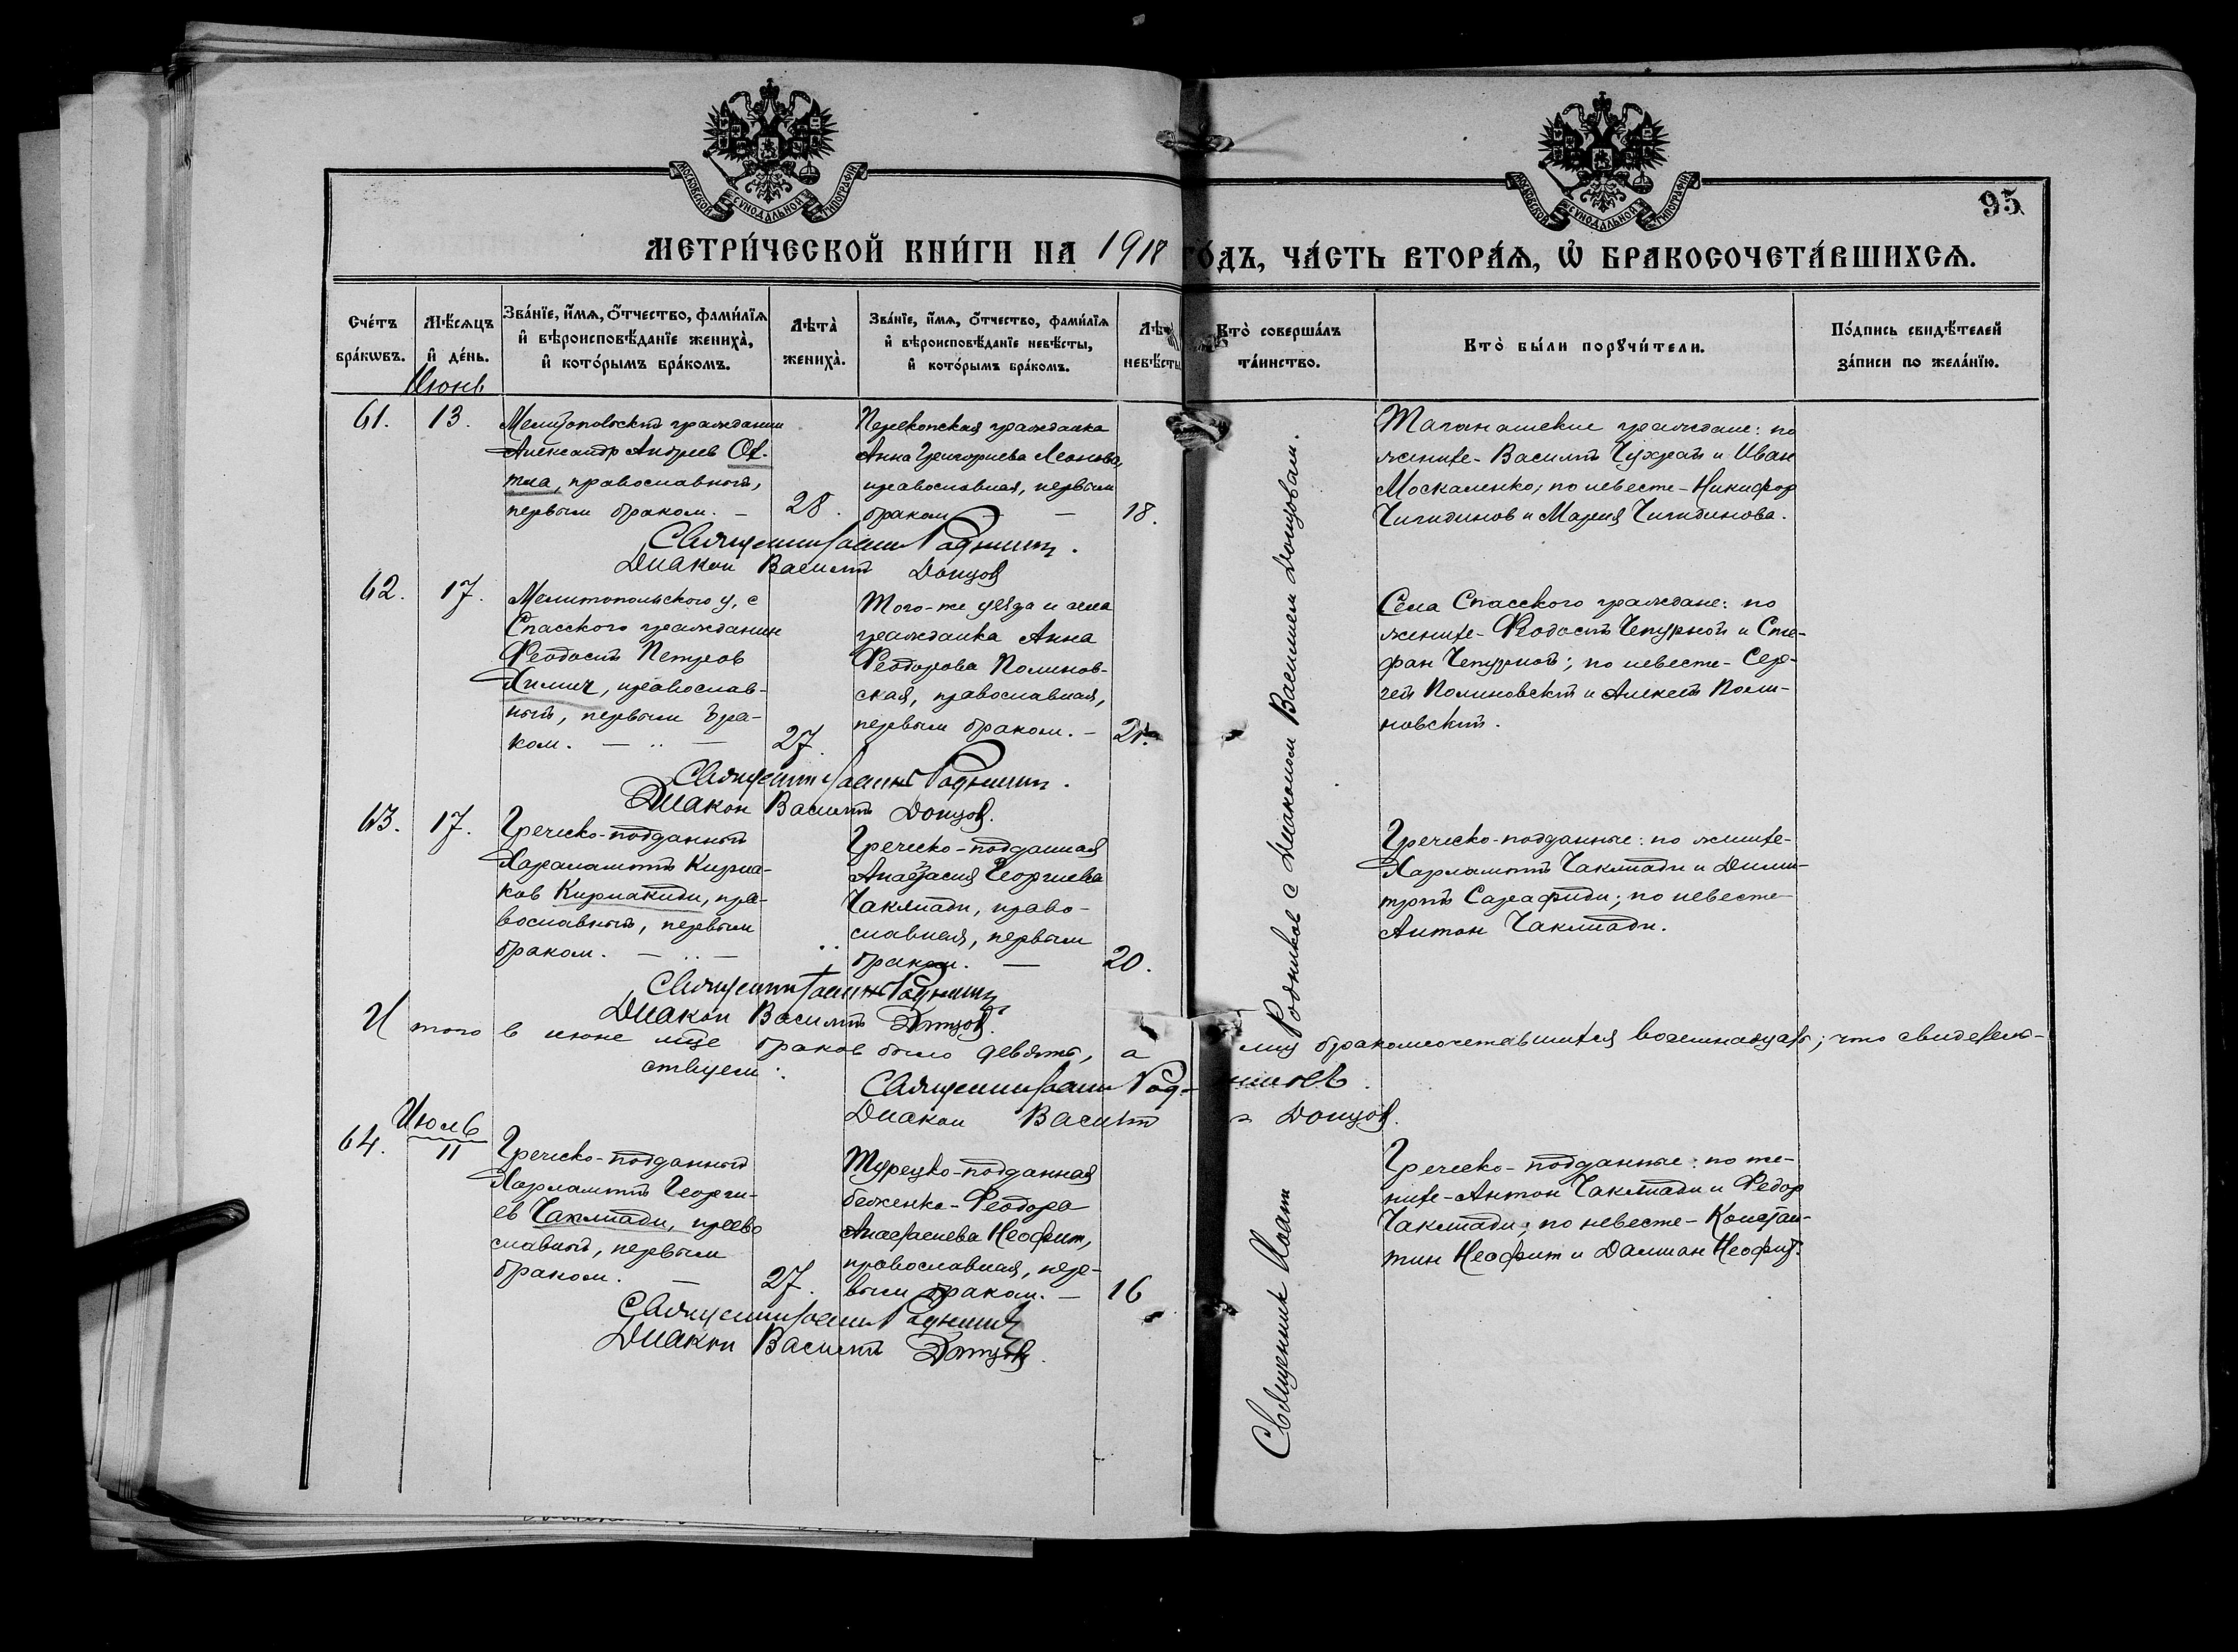 МОСКОВСКОЙ СУНОДАЛЬНОЙ ТИПОГРАФІИ
МОСКОВСКОЙ СУНОДАЛЬНОЙ ТИПОГРАФІИ
95
МЕТРИ́ЧЕСКОЙ КНИ́ГИ НА 1918 ГО́ДЪ, ЧА́СТЬ ВТОРА́Ѧ, Ѡ҆ БРАКОСОЧЕТА́ВШИХСѦ.
Сче́тъ бра́кѡвъ.
Мѣ́сѧцъ и҆ де́нь.
Зва́нїе, и҆́мѧ, ѻ҆́тчество, фами́лїѧ и҆ вѣроисповѣ́данїе жениха̀, и҆ кото́рымъ бра́комъ.
Лѣта̀ жениха̀.
Зва́нїе, и҆́мѧ, ѻ҆́тчество, фами́лїѧ и҆ вѣроисповѣ́данїе невѣ́сты, и҆ кото́рымъ бра́комъ.
Лѣ невѣ́сты
Кто̀ соверша́лъ та́инство.
Кто̀ бы́ли порꙋчи́тели.
По́дпись свидѣ́телей за́писи по жела́нїю.
Июнь
61. 13.
Мелитопольский гражданин
Александр Андреев
православный,
первым браком. —
28.
Перекопская гражданка
Анна Григориева Леонова,
православная, первым
браком — —
18.
Таганашские граждане: по
женихе - Василий Чухрай и Иван
Москаленко; по невесте - Никифор
Чигидинов и Мария Чигидинова.
Священник Иоанн Родников.
Диакон Василий Донцов
62. 17.
Мелитопольского у, с
Спасского гражданин
Феодосий Петров
Химич, православ-
ный, первым бра-
ком. — .. —
27.
Того-же уезда и села
гражданка Анна
Феодорова Полинов-
ская, православная,
первым браком. —
21.
Села Спасского граждане: по
женихе - Феодосий Чепурной и Сте-
фан Чепурной; по невесте - Сер-
гей Полиновский и Алексей Поли-
новский.
Священник Иоанн Родников.
Диакон Василий Донцов.
63. 17.
Греческо-подданный
Харалампий Кириа-
ков Кириакиди, пра-
вославный, первым
браком. — .. —
Греческо-подданная
Анастасия Георгиева
Чаклиади, право-
славная, первым
браком. —
20.
Греческо-подданные: по женихе-
Харлампий Чаклиади и Дими-
трий Сарафиди; по невесте-
Антон Чаклиади.
Священник Иоанн Родников
Диакон Василий Донцов.
Итого в июне м-це браков было девять, а лиц бракосочетавшихся восемнадцать; что свидетель-
ствуем:
Священник Иоанн Родников.
Диакон Василий Донцов.
Июль
64. 11
Греческо-подданный
Харлампий Георги-
ев Чаклиади, право
славный, первым
браком. —
27.
Турецко-подданная
беженка - Феодора
Анастасиева Неофит,
православная, пер-
вым браком. —
16
Греческо-подданные: по же-
нихе - Антон Чаклиади и Федор
Чаклиади; по невесте - Констан-
тин Неофит и Дамиан Неофит.
Священник Иоанн Родников
Диакон Василий Донцов.
Священник Иоанн Родников с диаконом Василием Донцовым.